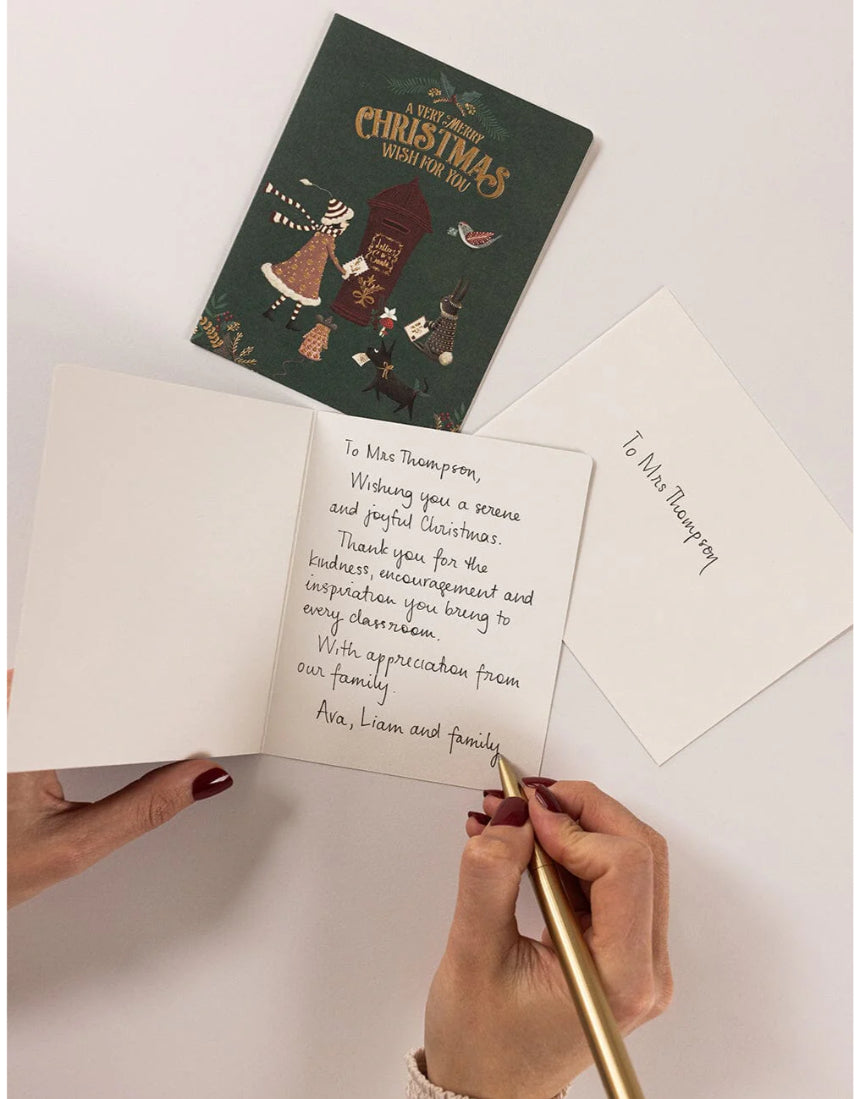 A VERY MERRY
CHRISTMAS
WISH FOR YOU
Letters
to
Santa
To Mrs Thompson,
Wishing you a serene
and joyful Christmas.
Thank you for the
kindness, encouragement and
inspiration you bring to
every classroom.
With appreciation from
our family.
Ava, Liam and family
To Mrs Thompson